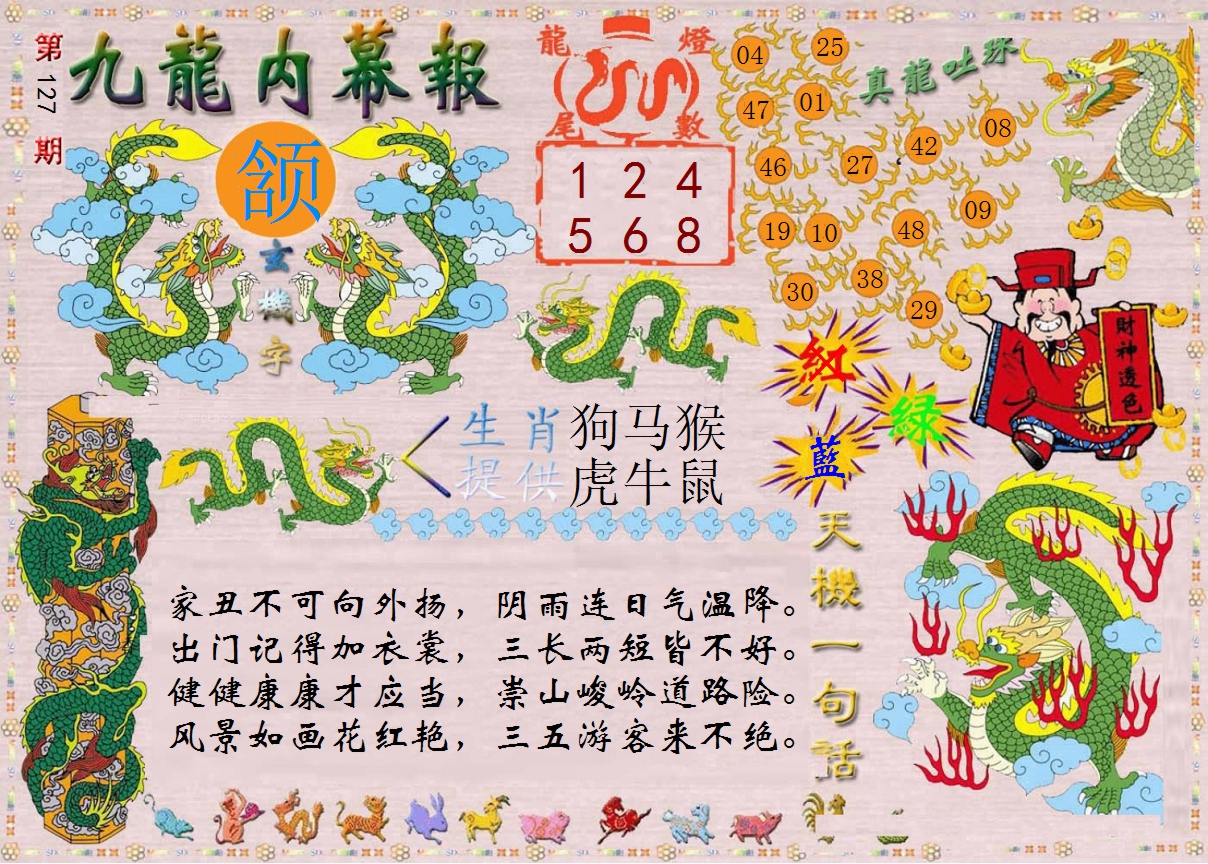 第127期
九龍内幕報
颔
玄機字
龍燈
尾數
1 2 4
5 6 8
真龍吐珠
04 25
47 01
46 27 42 08
19 10 48 09
30 38 29
紅
綠
藍
財神透色
生肖
提供
狗马猴
虎牛鼠
天機一句話
家丑不可向外扬，阴雨连日气温降。
出门记得加衣裳，三长两短皆不好。
健健康康才应当，崇山峻岭道路险。
风景如画花红艳，三五游客来不绝。